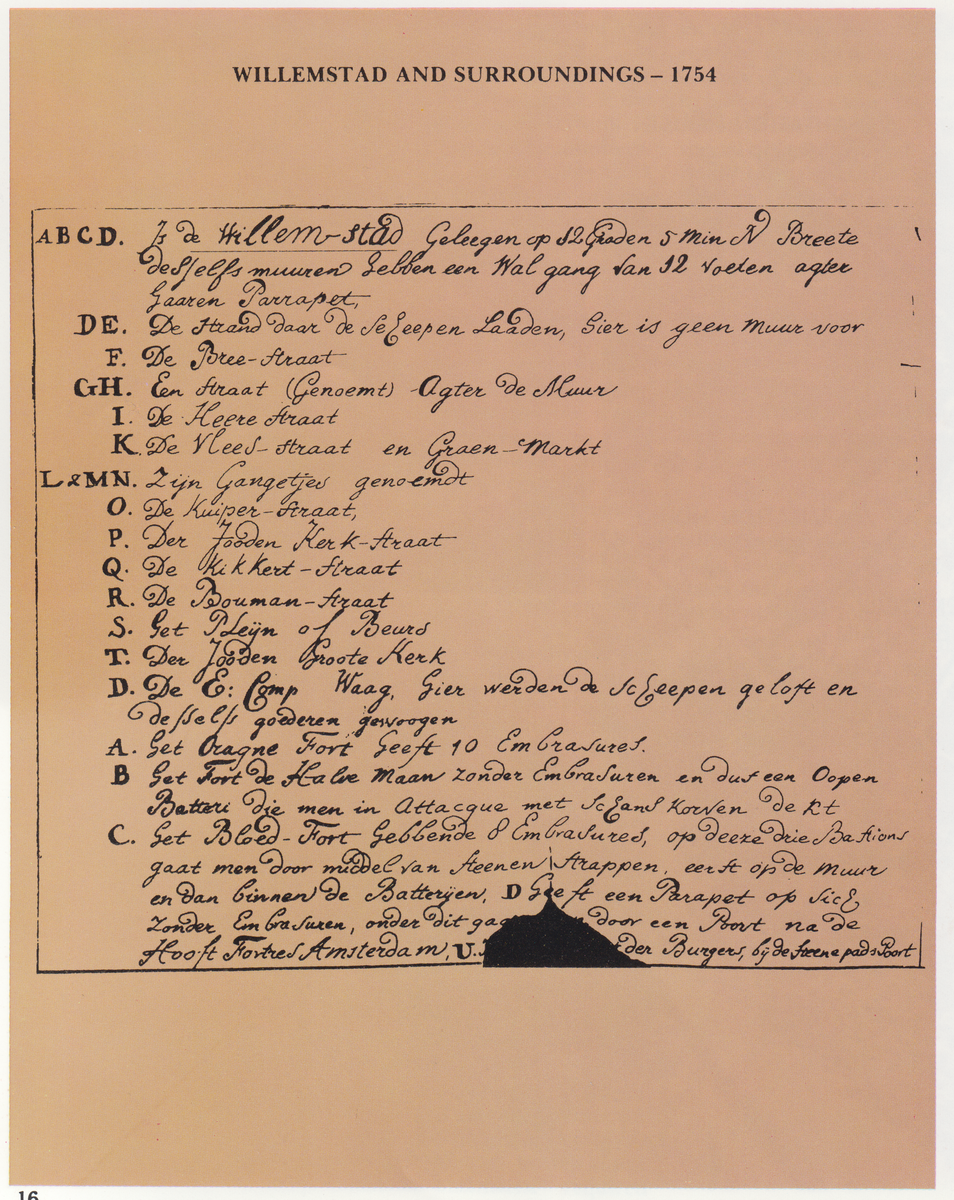 WILLEMSTAD AND SURROUNDINGS – 1754
ABCD. Is de Willem-stad Geleegen op 12 Graden 5 Min N Breete
desselfs muuren hebben een Wal gang van 12 voeten agter
haaren Parrapet,
DE. De strand daar de scheepen Laaden, hier is geen muur voor
F. De Bree-straat
GH. Een straat (Genoemt) Agter de Muur
I. De Heere straat
K. De Vlees-straat en Graen-Markt
L&MN. Zijn Gangetjes genoemdt
O. De Kuiper-straat,
P. Der Jooden Kerk-straat
Q. De Kikkert-straat
R. De Bouman-straat
S. Het Pleijn of Beurs
T. Der Jooden Groote Kerk
D. De E: Comp Waag, hier werden de scheepen geloft en
desselfs goederen gewoogen
A. Het Oragne Fort heeft 10 Embrasures.
B Het Fort de Halve Maan zonder Embrasuren en dus een Oopen
Batteri die men in Attacque met schans korven dekt
C. Het Bloed-Fort hebbende 8 Embrasures, op deeze drie Bastions
gaat men door middel van steenen trappen, eerst op de muur
en dan binnen de Batterijen, D Heeft een Parapet op sich
zonder Embrasuren, onder dit door een Poort na de
Hooft Fortres Amsterdam, U. der Burgers, bij de steene pads Poort
16